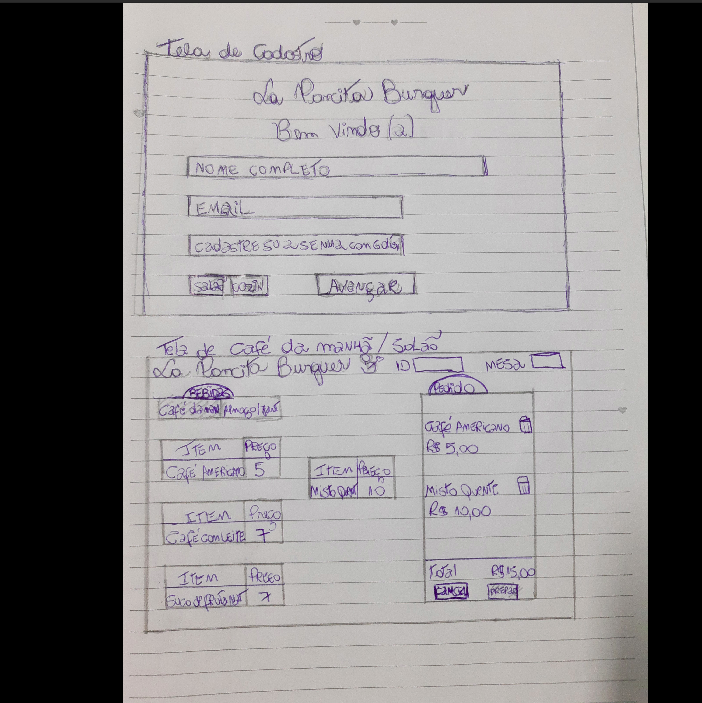 Tela de Cadastro
La Poncita Burguer
Bem Vindo (a)
NOME COMPLETO
EMAIL
CADASTRE SUA SENHA COM 6 DIG
SALÃO COZIN
AVANÇAR
Tela de Café da manhã / Salão
La Poncita Burguer ID MESA
BEBIDAS Pedido
Café da man Almoço/Jant
ITEM PREÇO
CAFÉ AMERICANO 5
ITEM PREÇO
MISTO QUEN 10
ITEM Preço
CAFÉ COM LEITE 7
ITEM PREÇO
SUCO DE FRUTAS NAT 7
CAFÉ AMERICANO
R$ 5,00
MISTO QUENTE
R$ 10,00
Total R$ 15,00
CANCEL PREPAR